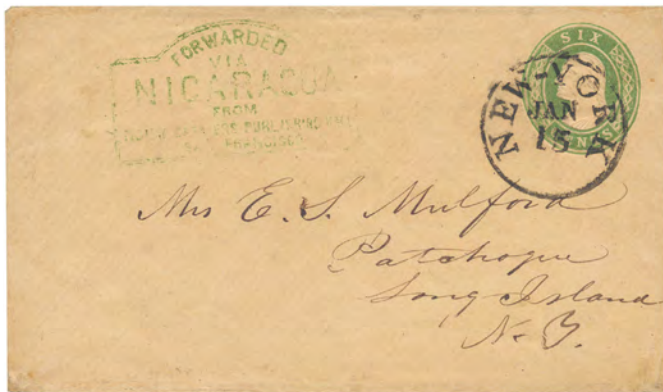 FORWARDED
VIA
NICARAGUA
FROM
FRANCISCO
SIX
NEW-YORK
JAN
15
Mrs E. S. Mulford
Patchogue
Long Island
N. Y.